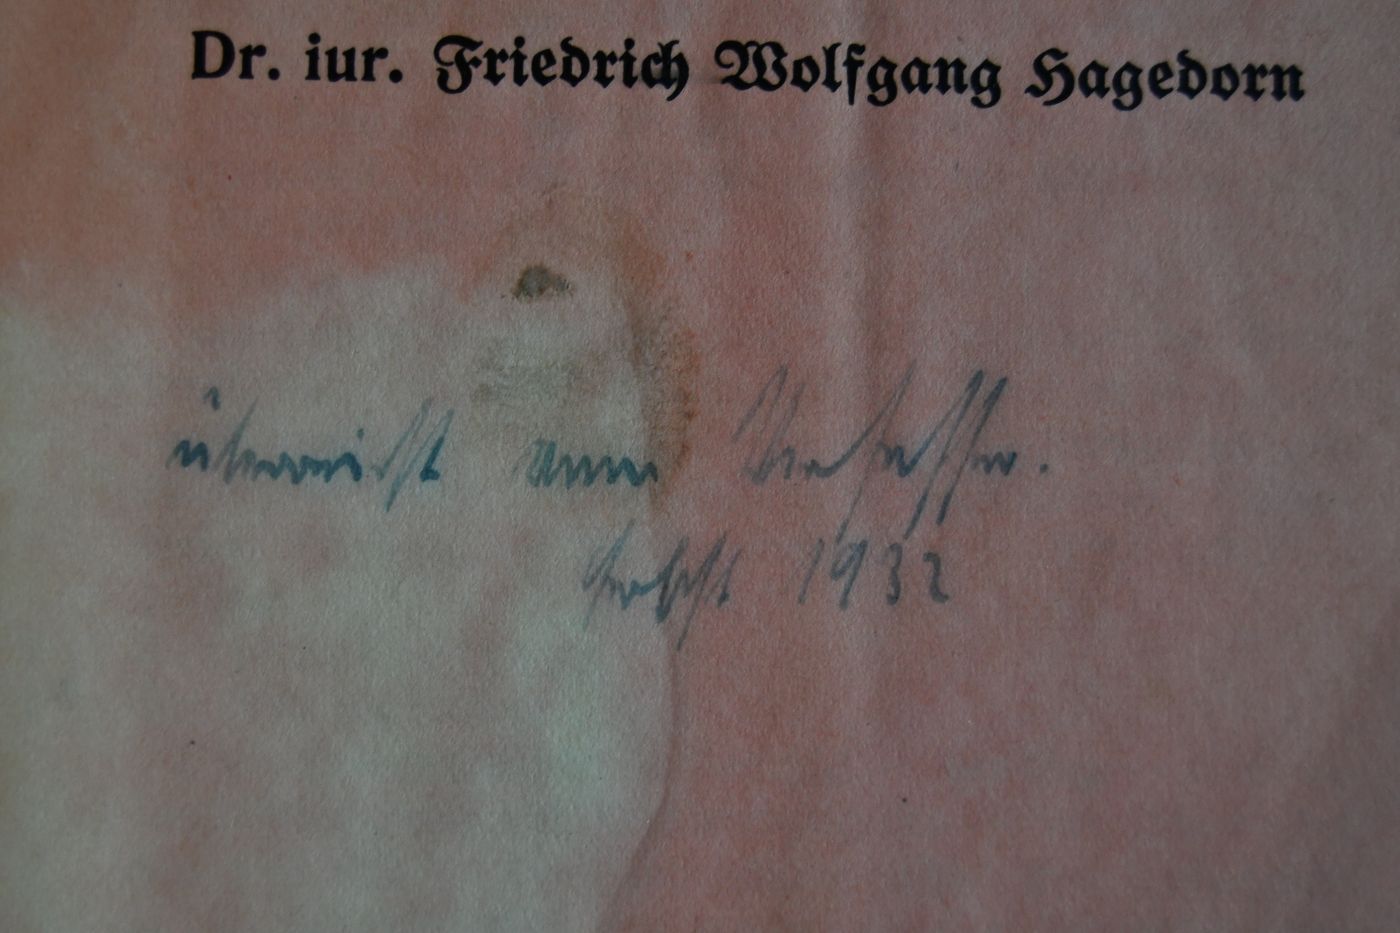 Dr. iur. Friedrich Wolfgang Hagedorn
überreicht vom Verfasser.
Herbst 1932